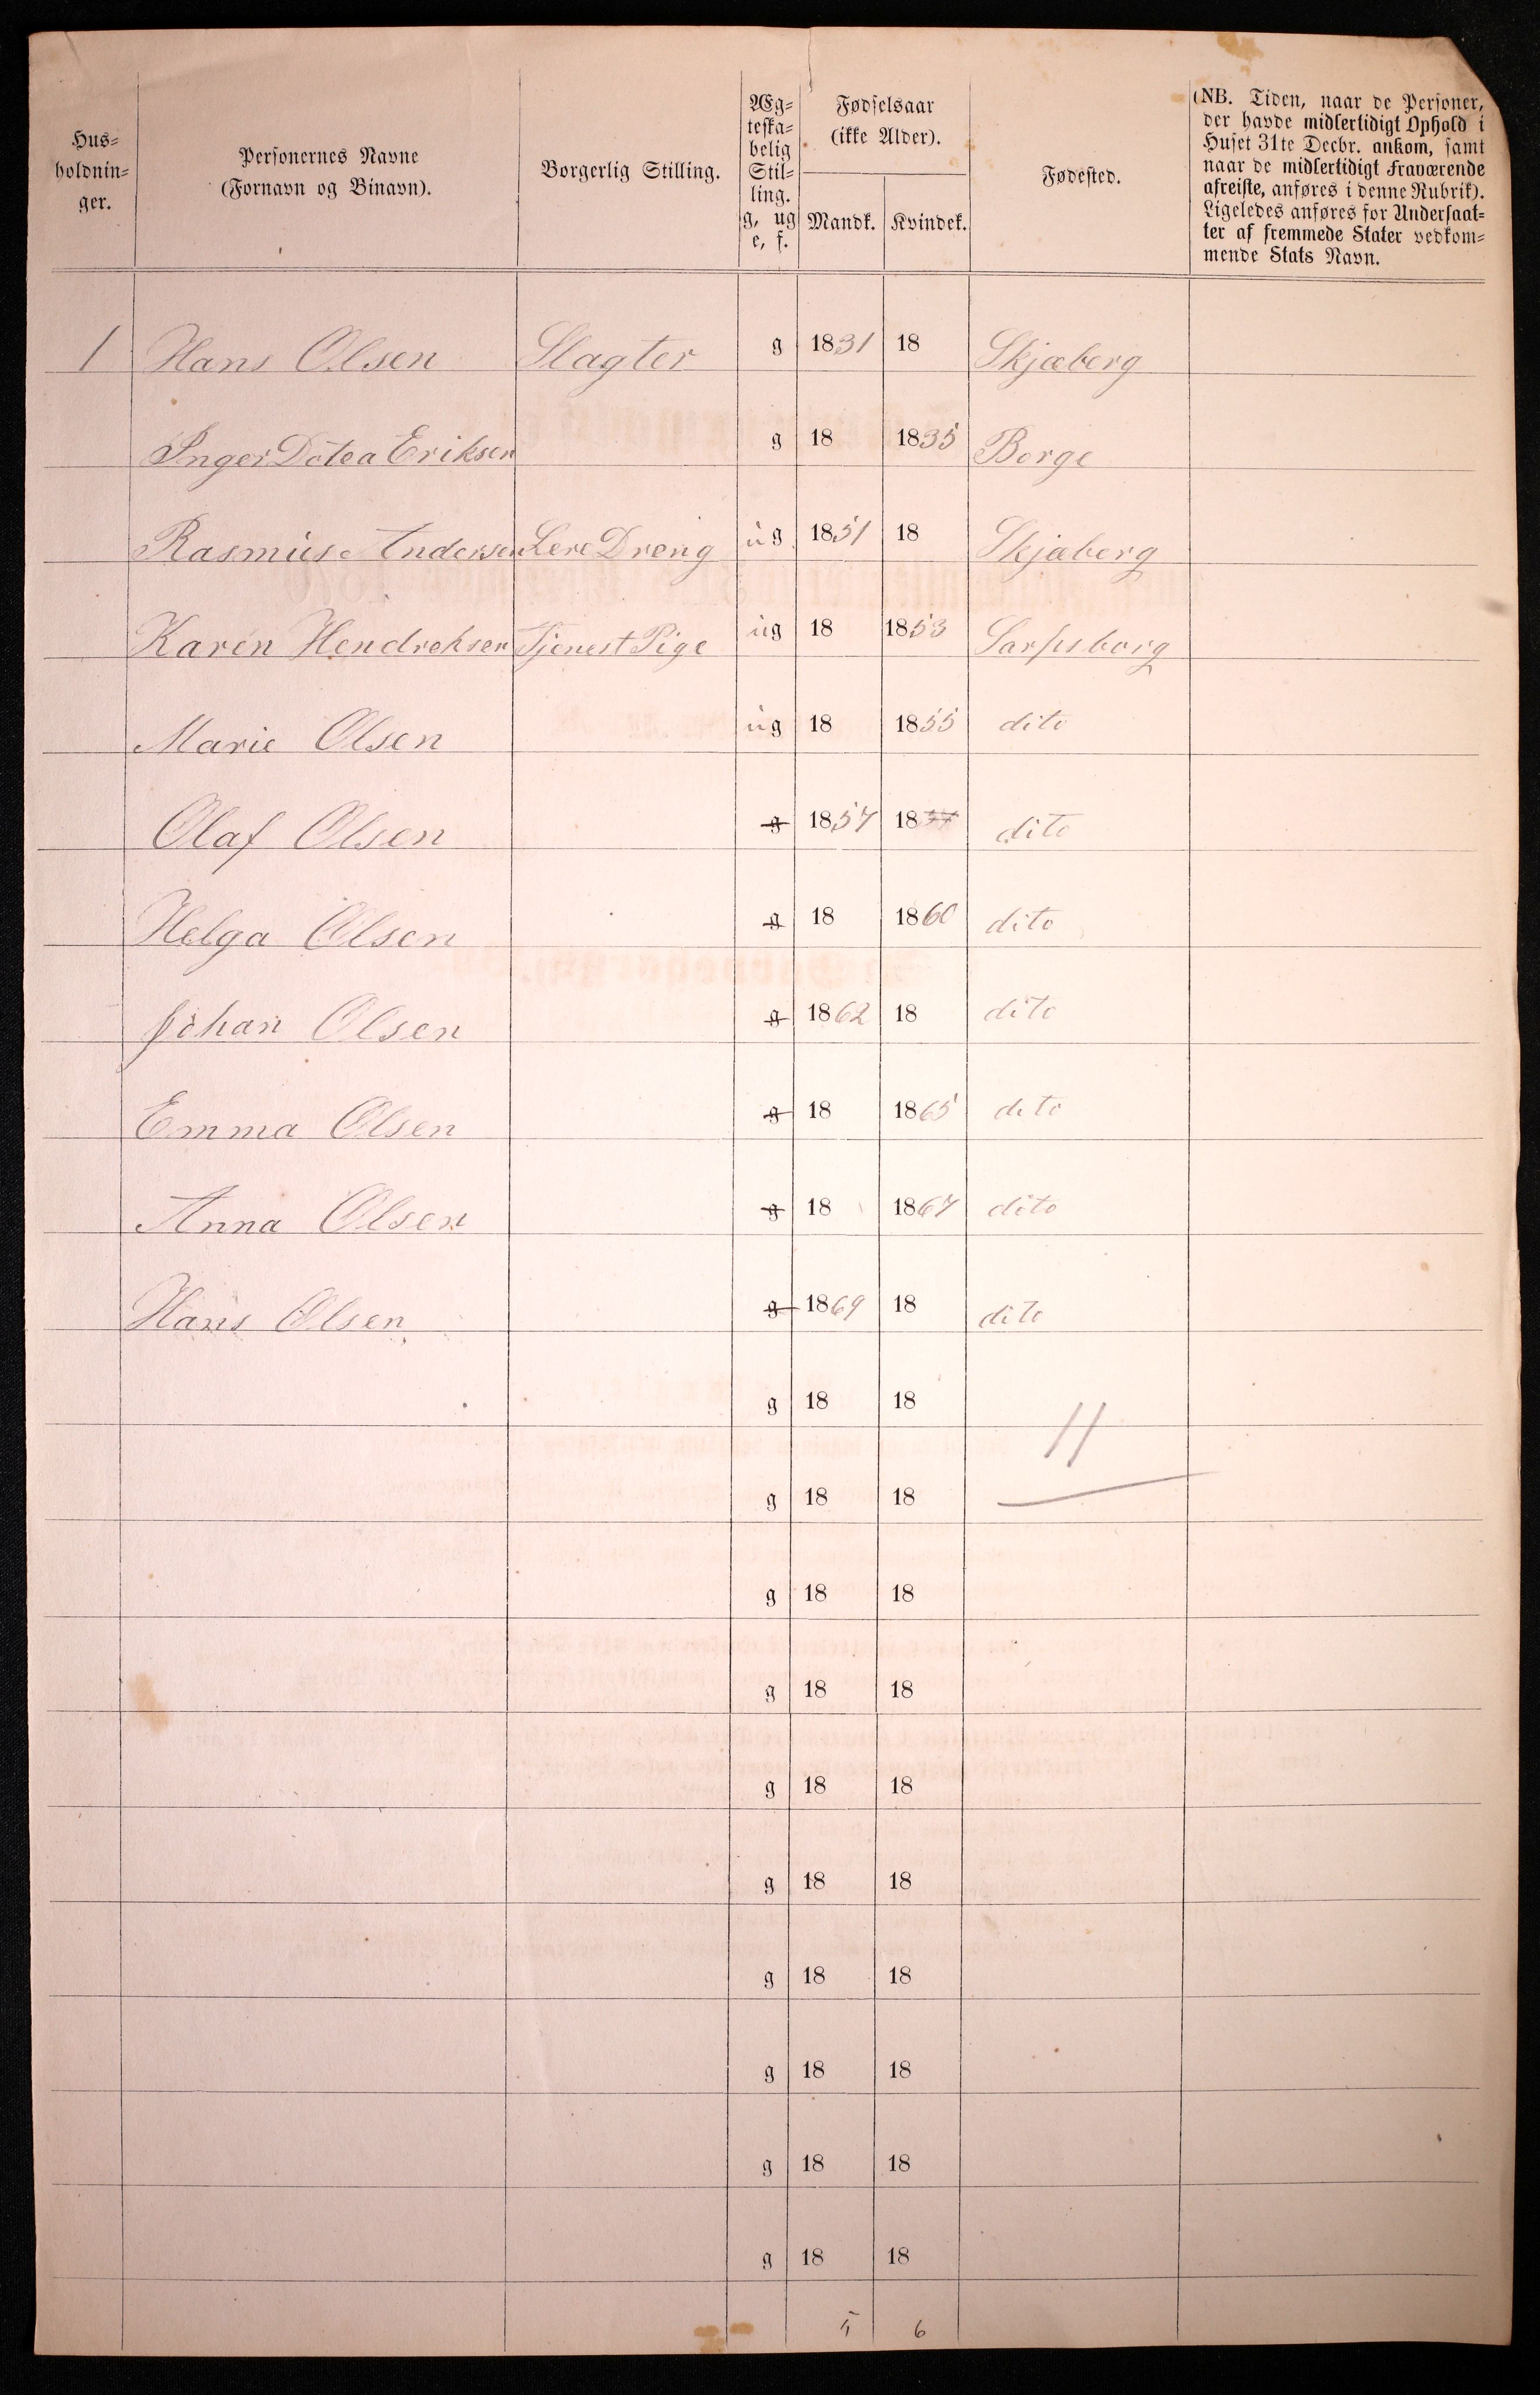 Hus-
holdnin-
ger.
Personernes Navne
(Fornavn og Binavn).
Borgerlig Stilling.
Æg-
teska-
belig
Stil-
ling.
g, ug
e, f.
Fødselsaar
(ikke Alder).
Mandk. Kvindek.
Fødested.
(NB. Tiden, naar de Personer,
der havde midlertidigt Ophold i
Huset 31te Decbr. ankom, samt
naar de midlertidigt fraværende
afreiste, anføres i denne Rubrik).
Ligeledes anføres for Undersaat-
ter af fremmede Stater vedkom-
mende Stats Navn.
1 Hans Olsen Slagter g 1831 18 Skjæberg
Inger Dotea Eriksen g 18 1835 Borge
Rasmus Andersen Lere Dreng ug 1851 18 Skjæberg
Karen Hendreksen Tjenest Pige ug 18 1853 Sarpsborg
Marie Olsen ug 18 1855 dito
Olaf Olsen g 1857 18 dito
Helga Olsen g 18 1860 dito
Johan Olsen g 1862 18 dito
Emma Olsen g 18 1865 dito
Anna Olsen g 18 1867 dito
Hans Olsen g 1869 18 dito
g 18 18
11
g 18 18
g 18 18
g 18 18
g 18 18
g 18 18
g 18 18
g 18 18
g 18 18
g 18 18
5 6